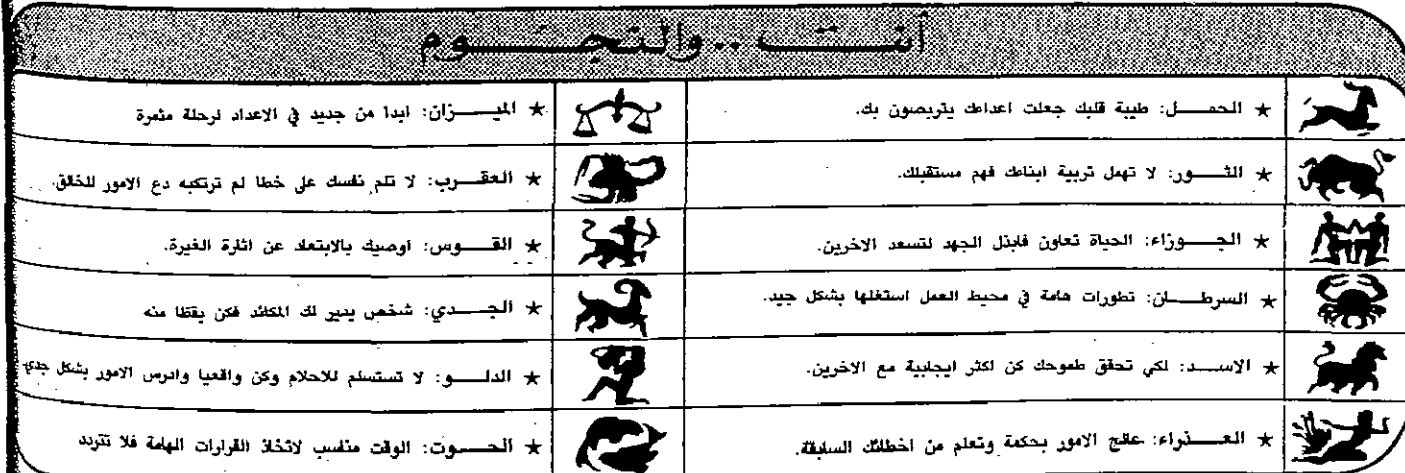 أنت .. والنجوم
★ الحمل: طيبة قلبك جعلت اعداءك يتربصون بك.
★ الثور: لا تهمل تربية ابناءك فهم مستقبلك.
★ الجوزاء: الحياة تعاون فابذل الجهد لتسعد الاخرين.
★ السرطان: تطورات هامة في محيط العمل استغلها بشكل جيد.
★ الاسد: لكي تحقق طموحك كن اكثر ايجابية مع الاخرين.
★ العذراء: عالج الامور بحكمة وتعلم من اخطائك السابقة.
★ الميزان: ابدا من جديد في الاعداد لرحلة مثمرة
★ العقرب: لا تلم نفسك على خطا لم ترتكبه دع الامور للخالق.
★ القوس: اوصيك بالابتعاد عن اثارة الغيرة.
★ الجدي: شخص يدبر لك المكائد فكن يقظا منه
★ الدلو: لا تستسلم للاحلام وكن واقعيا وادرس الامور بشكل جدي
★ الحوت: الوقت مناسب لاتخاذ القرارات الهامة فلا تتردد